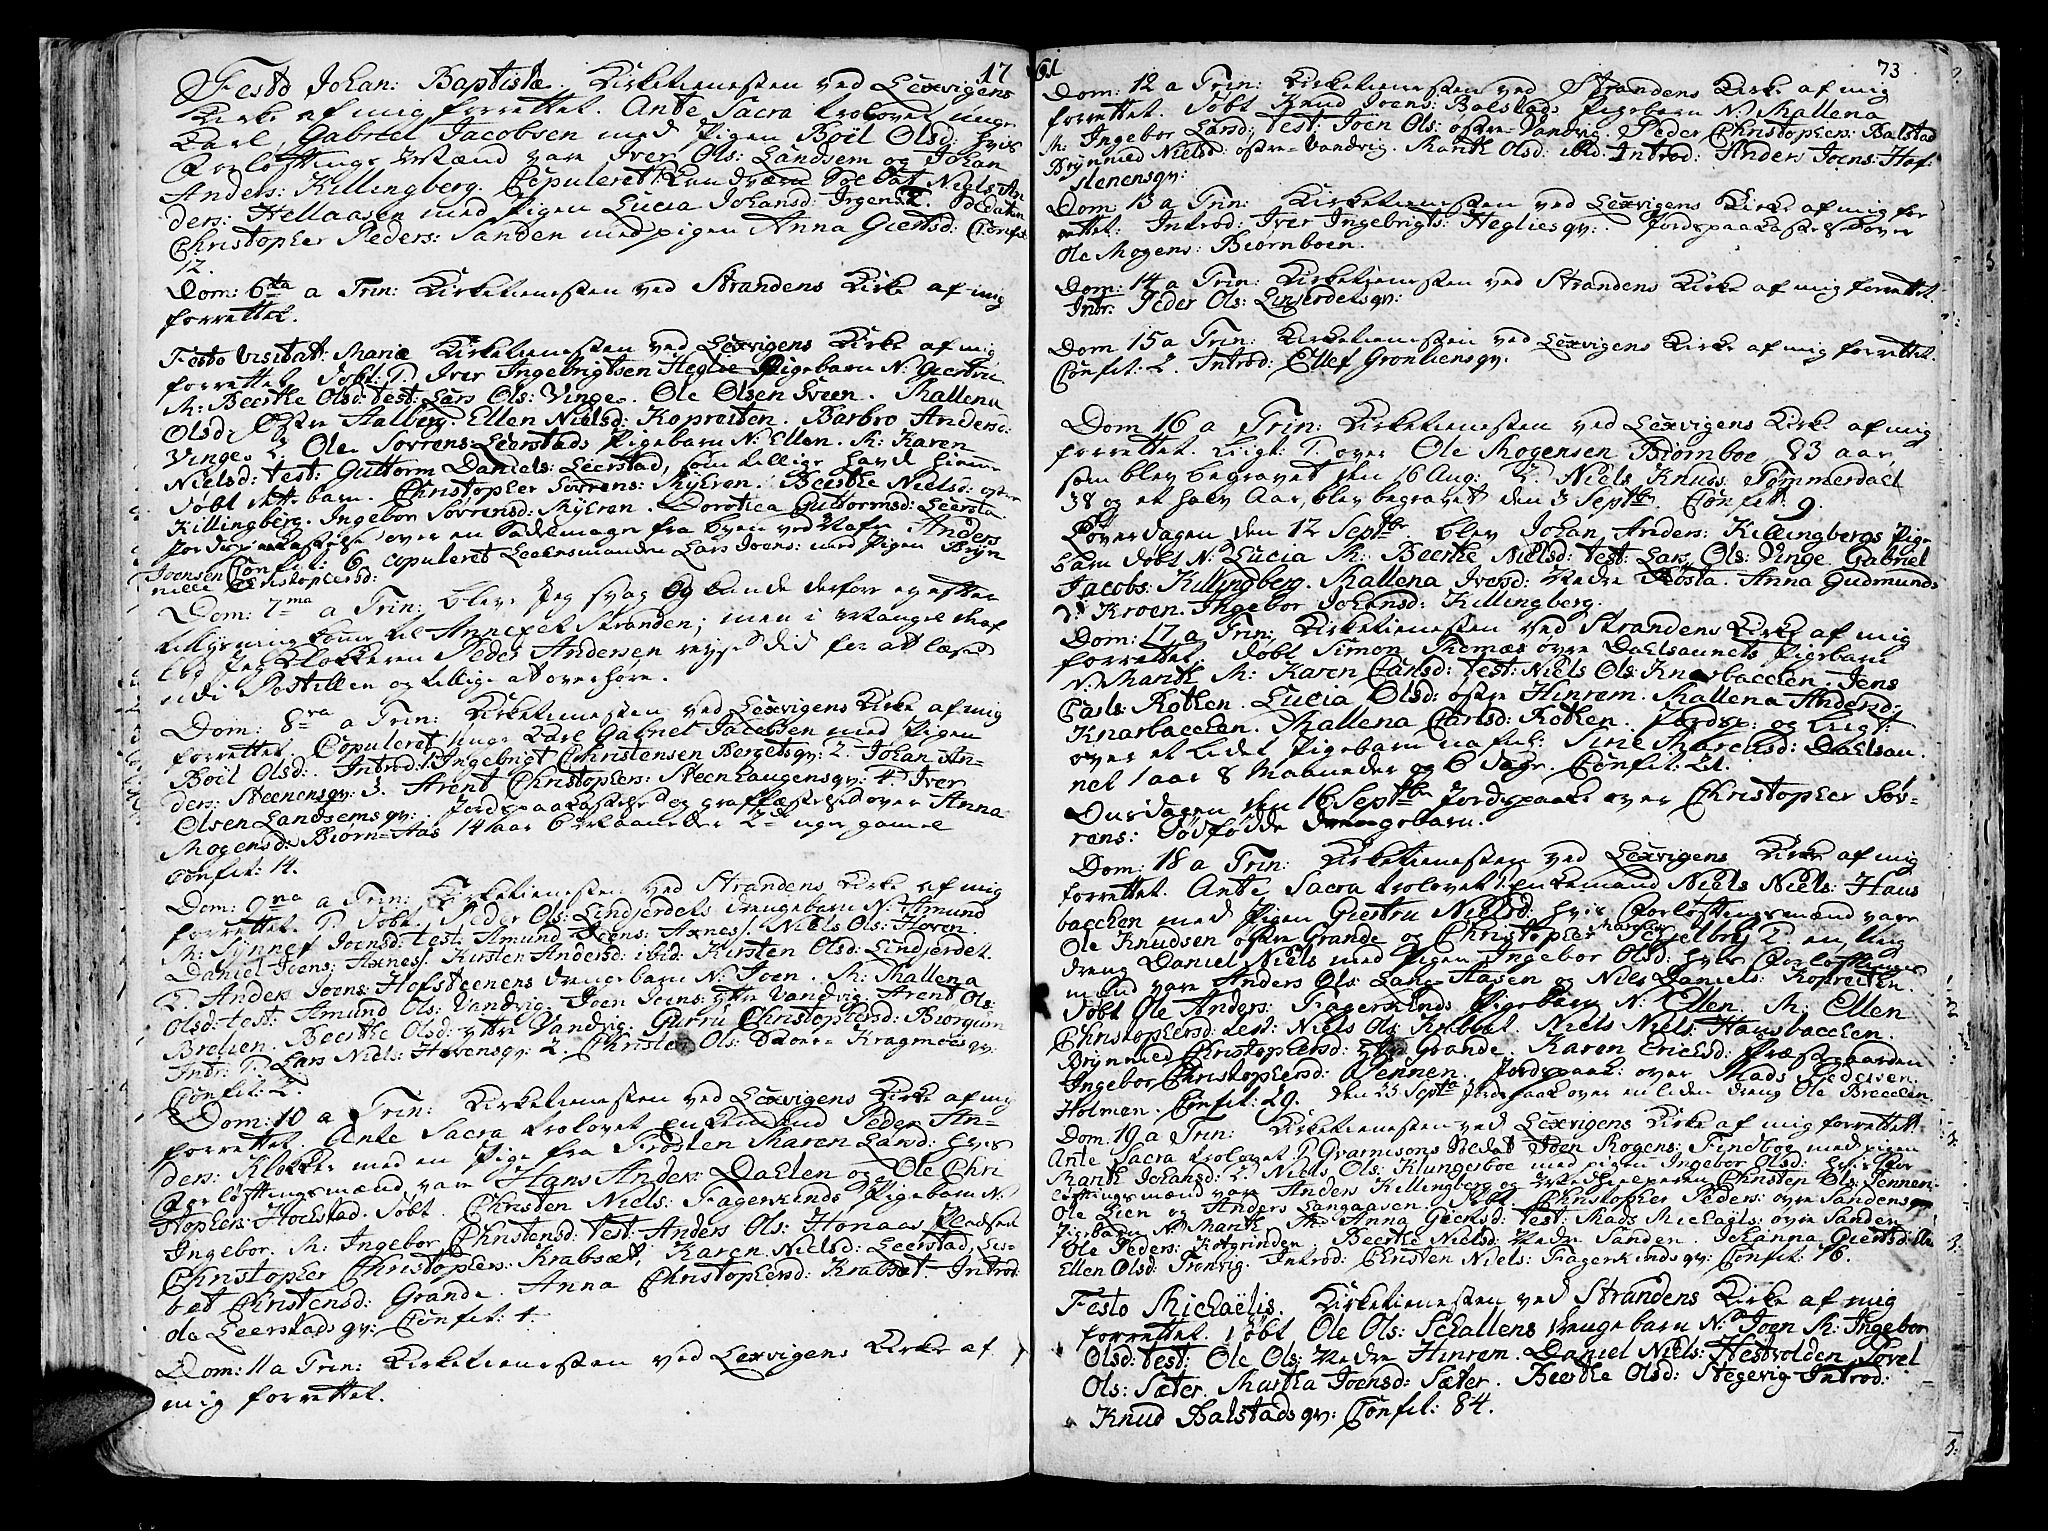 17
Festo Johan: Baptistæ. Kirketienesten ved Lexvigens
Kirke af mig forrettet. Ante Sacra trolovet unge
Karl Gabriel Jacobsen med Pigen Boil Olsd: hvis
Forløftings Mænd vare Iver Ols: Landsem og Johan
Anders: Killingberg. Copuleret Landværn Soldat Niels An
ders: Hellaasen med Pigen Lucia Johansd:
Christopher Peders: Sanden med pigen Anna Giertsd: Confit:
12.
Dom: 6ta a Trin: Kirketienesten ved Strandens Kirke af mig
forrettet.
Festo Visitat: Mariæ Kirketienesten ved Lexvigens Kirke af mig
forrettet. Døbt: Iver Ingebrigtsen Heglie Pigebarn N: Giertru
M: Beerthe Olsd: test: Lars Ols: Vinge. Ole Olsen Hveen. Mallena
Olsd: Østre Aalberg. Ellen Nielsd: Kopreiten. Barbro Andersd:
Vinge. 2 Ole Sørrens: Leerstads Pigebarn N: Ellen. M: Karen
Nielsd: test: Guttorm Daniels: Leerstad, som tillige havde hiemme
døbt dette barn. Christopher Sørrens: Myhren. Beerthe Nielsd: østre
Killingberg. Ingebor Sørrensd: Myhren. Dorothea Guttormsd: Leersta
Jordspaakastelse over en Baadsmage fra Byen ved Nafn Anders
Joensen Confit: 6 copuleret Leedesmanden Lars Joens: med Pigen Bryn
nilla Christophersd:
Dom: 7ma a Trin: blev Jeg svag og kunde derfor ey efter
tillysning komme til Annexet Stranden; men i Mangel deraf
lod Jeg Klokkeren Peder Andersen reyse did for at læse
udi Postillen og tillige at overhøre.
Dom: 8va a Trin: Kirketienesten ved Lexvigens Kirke af mig
forrettet. Copuleret unge Karl Gabriel Jacobsen med Pigen
Boil Olsd: Introd: Ingebrigt Christensen Bergetsqv: 2. Johan An-
ders: Steenensqv: 3. Arent Christophers: Steenhaugensqv: 4. Iver
Olsen Landsemsqv: Jordspaakastelse og graffæstelse over Anna
Mogensd: Biørn-Aas 14 aar 6 Maaneder 2de uger gamel
Confit: 14.
Dom: 9na a Trin: Kirketienesten ved Strandens Kirke af mig
forrettet. Døbt. Peder Ols: Lindjerdets drengebarn N: Amund
M: Synnef Joensd: test: Amund Joens: Axnes. Niels Ols: Hoven.
Daniel Joens: Axnes. Kirsten Andersd: ibid: Kirsten Olsd: Lindjerdet.
2. Anders Joens: Hofsteenens drengebarn N: Joen. M: Mallena
Olsd: test: Amund Ols: Vandvig. Joen Joens: ytre Vandvig. Arent Ols:
Brelien. Beerthe Olsd: ytre Vandvig. Gurru Christophersd: Biørgum
Intr: Lars Niels: Hovensqv: 2. Christen Ols: Kragmoesqv:
Confit: 2.
Dom: 10 a Trin: Kirketienesten ved Lexvigens Kirke af mig
forrettet. Ante Sacra trolovet enkemand Peder An-
ders: Klokker med en Pige fra Frosten Maren Larsd: hvis
Forløftingsmænd vare Hans Anders: Dahlen og Ole Chri
stophers: Hochstad. Døbt. Christen Niels: Fagerlinds Pigebarn N:
Ingebor. M: Ingebor Christensd: test: Anders Ols: Honaas
Christopher Christophers: Krabsæt. Karen Nielsd: Leerstad. Lis-
bet Christensd: Grande. Anna Christophersd: Krabsæt. Introd:
Ole Leerstadsqv: Confit: 4.
Dom: 11 a Trin: Kirketienesten ved Lexvigens Kirke af
mig forrettet.
61
73
Dom: 12 a Trin: Kirketienesten ved Strandens Kirke af mig
forrettet. Døbt Knud Joens: Balstads Pigebarn N: Mallena
M: Ingebor Larsd: test: Joen Ols: østre-Vandvig. Peder Christophers: Balstad
Brynmed Nielsd: østre-Vandvig. Marith Olsd: ibid. Introd: Anders Joens: Hof-
stenensqv:
Dom 13 a Trin: Kirketienesten ved Lexvigens Kirke af mig for
rettet. Introd: Iver Ingebrigts: Hegliesqv: Jordspaakastelse over
Ole Mogens: Biørnboen.
Dom: 14 a Trin: Kirketienesten ved Strandens Kirke af mig forrettet.
Intr: Peder Ols: Linjerdetsqv:
Dom 15 a Trin: Kirketienesten ved Lexvigens Kirke af mig forrettet.
Confit: 2. Introd: Ellef Grønliensqv:
Dom 16 a Trin: Kirketienesten ved Lexvigens Kirke af mig
forrettet. Ligt: over Ole Mogensen Biørnboe 83 aar,
som blev begravet den 16 Aug: 2. Niels Knuds: Tømmerdal
38 og et halv Aar, blev begravet den 3 Septbr. Confit: 9.
Løverdagen den 12 Septbr blev Johan Anders: Killingbergs Pige
barn døbt N: Lucia M: Beerthe Nielsd: test: Lars Ols: Vinge. Gabriel
Jacobs: Killingberg. Mallena Iversd: Nedre Røsta. Anna Gudmunds
d: Kroen. Ingebor Johansd: Killingberg.
Dom: 17 a Trin: Kirketienesten ved Strandens Kirke af mig
forrettet. Døbt Simon Thomæs øvre Dahlsaunets Pigebarn
N: Marith M: Karen Larsd: test: Niels Ols: Knarbacchen. Jens
Carls: Rotken. Lucia Olsd: østre Hinrem. Mallena Andersd:
Knarbacchen. Mallena Carlsd: Rotken. Jordsp: og Ligt:
over et lidet Pigebarn nafnl: Siri Marchusd: Dahlsau
net 1 aar 8 Maaneder og 6 dage. Confit: 21.
Onsdagen den 16 Septbr Jordspaak: over Christopher Sør-
rens: dødfødde drengebarn.
Dom: 18 a Trin: Kirketienesten ved Lexvigens Kirke af mig
forrettet. Ante Sacra trolovet: Enkemand Niels Niels: Haus
bacchen med Pigen Giertru Nielsd: hvis Forløftingsmænd vare
Ole Knudsen østre Grande og Christopher Schielbrej 2 en ung
dreng Daniel Niels: med Pigen Ingebor Olsd: hvis Forløftings
mænd vare Anders Ols: Lang-Aasen og Niels Daniels: Kopreiten.
Døbt Ole Anders: Fagerlinds Pigebarn N: Ellen. M: Ellen
Christophersd: test: Niels Ols: Niels Niels: Hausbacchen.
Brynmed Christophersd: ytre Grande. Karen Erichsd: Præstegaarden
Ingebor Christophersd: Vennen. Jordspaak: over Mads Pedersen
Holmen. Confit: 29. den 25 Septbr Jordspaak over en liden dreng Ole Brecchen.
Dom: 19 a Trin: Kirketienesten ved Lexvigens Kirke af mig forrettet.
Ante Sacra trolovet Guarnisons Soldat Joen Rogens: Findboe med pigen
Marith Johansd: 2. Niels Ols: Klungerboe med pigen Ingebor Olsd: hvis For-
løftingsmænd vare Anders Killingberg og Christen Ols: Vennen.
Ole Lien og Anders Langaasen. Døbt Christopher Peders: øvre Sandens
Pigebarn N: Marith M: Anna Giertsd: test: Mads Michaels: øvre Sanden
Ole Peders: Kotgrinden. Beerthe Nielsd: Nedre Sanden. Johanna Giertsd:
Ellen Olsd: Tronvig. Introd: Christen Niels: Fagerlindsqv: Confit: 76.
Festo Michaëlis. Kirketienesten ved Strandens Kirke af mig
forrettet. Døbt Ole Ols: Schallens drengebarn N: Joen M: Ingebor
Olsd: test: Ole Ols: Nedre Hinrem. Daniel Niels: Hestvolden. Povel
Ols: Sæter. Martha Joensd: Sæter. Beerthe Olsd: Stegevig. Introd:
Knud Balstadsqv: Confit: 84.